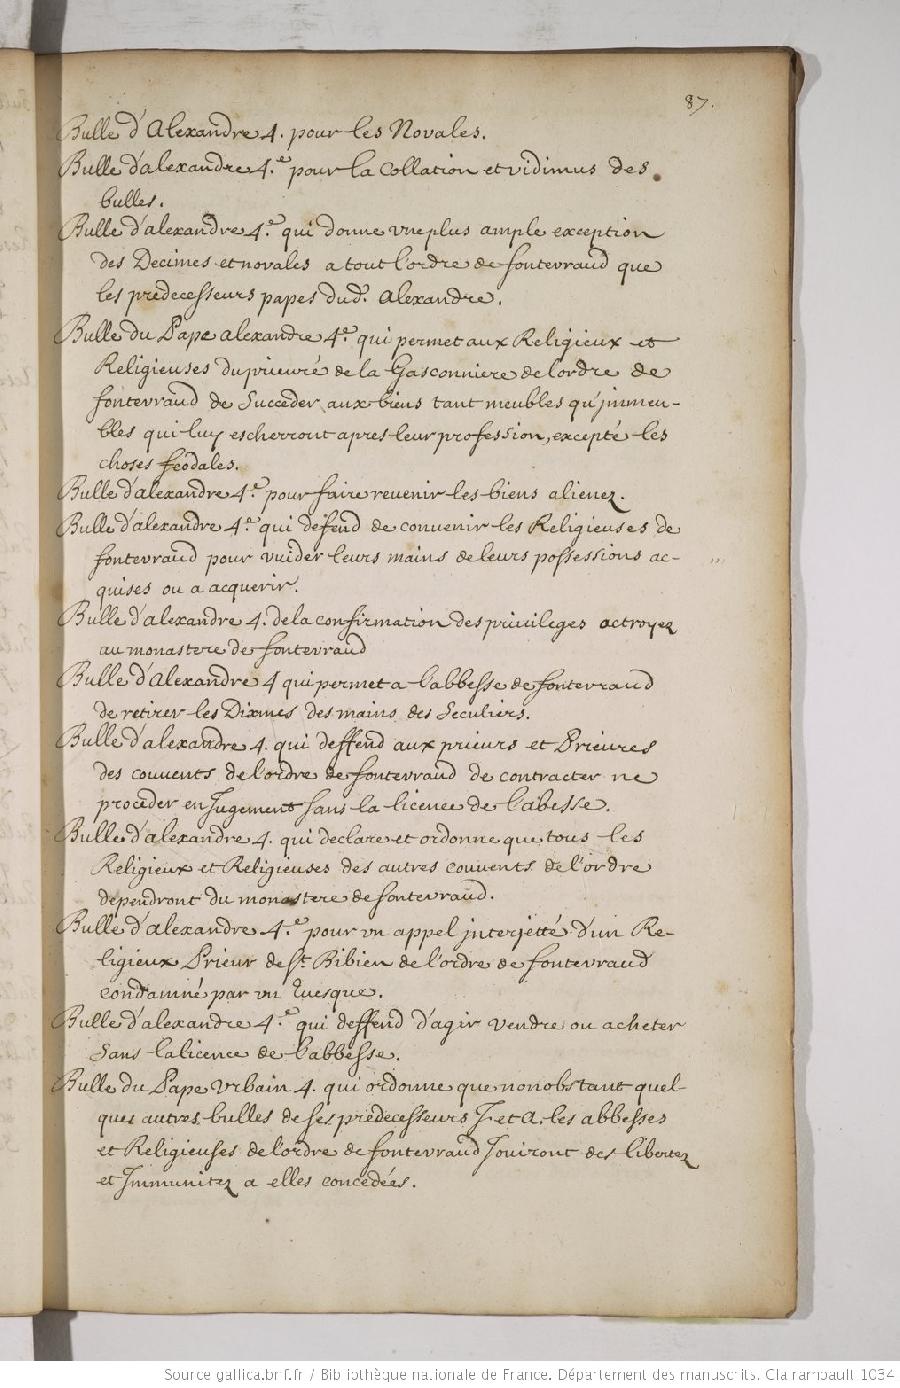 87.
Bulle d'Alexandre 4. pour les Novales.
Bulle d'alexandre 4.e pour la Collation et vidimus des
bulles.
Bulle d'alexandre 4.e qui donne vne plus ample exception
des Decimes et novales a tout l'ordre de fontevraud que
les predecesseurs papes dud. Alexandre.
Bulle du Pape alexandre 4.e qui permet aux Religieux et
Religieuses du prieuré de la Gasconniere de l'ordre de
fontevraud de Succeder aux biens tant meubles qu'jmmeu-
bles qui luy escherront apres leur profession, excepté les
choses féodales.
Bulle d'alexandre 4.e pour faire revenir les biens alienez.
Bulle d'alexandre 4.e qui défend de convenir les Religieuses de
fontevraud pour vuider leurs mains de leurs possessions ac-
quises ou a acquerir.
Bulle d'alexandre 4. de la confirmation des privileges octroyez
au monastere de fontevraud
Bulle d'Alexandre 4 qui permet a l'abbesse de fontevraud
de retirer les Dixmes des mains des Seculiers.
Bulle d'alexandre 4. qui deffend aux prieurs et Prieures
des couvents de l'ordre de fontevraud de contracter ne
proceder en Jugement sans la licence de l'abesse.
Bulle d'alexandre 4. qui declare et ordonne que tous les
Religieux et Religieuses des autres couvents de l'ordre
dependront du monastere de fontevraud.
Bulle d'alexandre 4.e pour vn appel jnterjetté d'un Re-
ligieux Prieur de St. Bibien de l'ordre de fontevraud
condamné par vn Evesque.
Bulle d'alexandre 4.e qui deffend d'agir vendre ou acheter
Sans la licence de l'abbesse.
Bulle du Pape Vrbain 4. qui ordonne que nonobstant quel-
ques autres bulles de ses predecesseurs J. et A. les abbesses
et Religieuses de l'ordre de fontevraud Jouiront des libertez
et Jmmunitez a elles concédées.
Source gallica.bnf.fr / Bibliothèque nationale de France. Département des manuscrits. Clairambault 1034